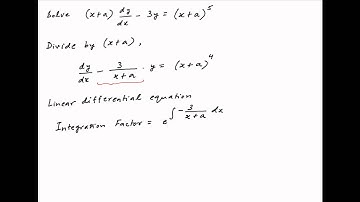 Solve (x+a) dy/dx - 3y = (x+a)^5
Divide by (x+a),
dy/dx - 3/(x+a) · y = (x+a)^4
Linear differential equation
Integration Factor = e^∫-3/(x+a) dx